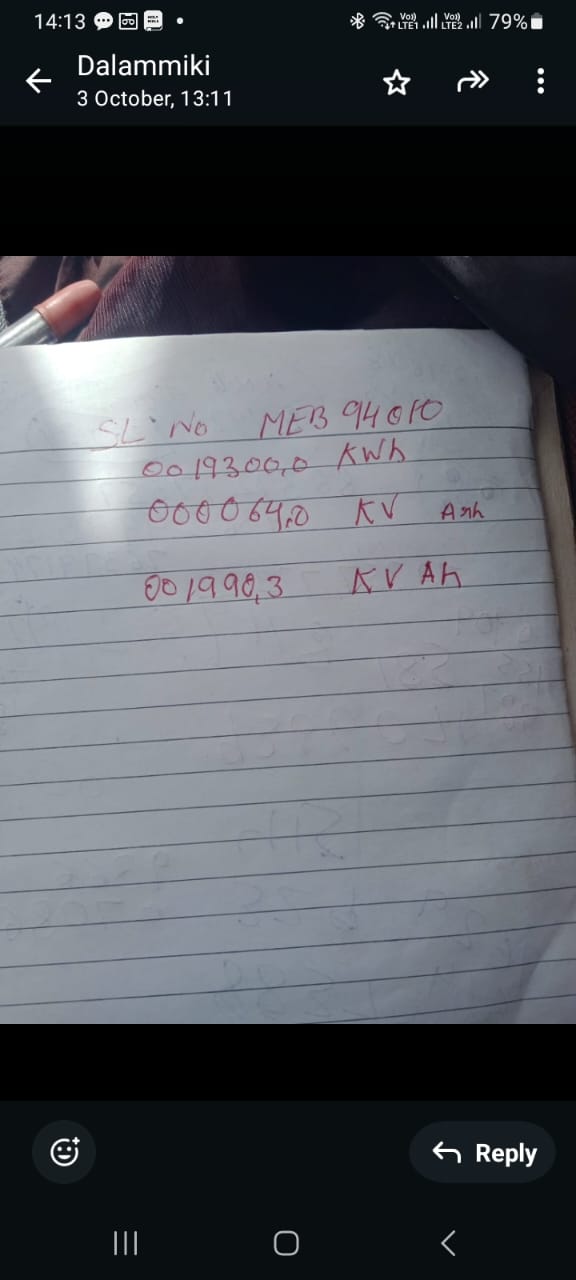 14:13
79%
Dalammiki
3 October, 13:11
SL No MEB 94010
0019300,0 KWh
000064,0 KV Arh
001990,3 KV Ah
Reply